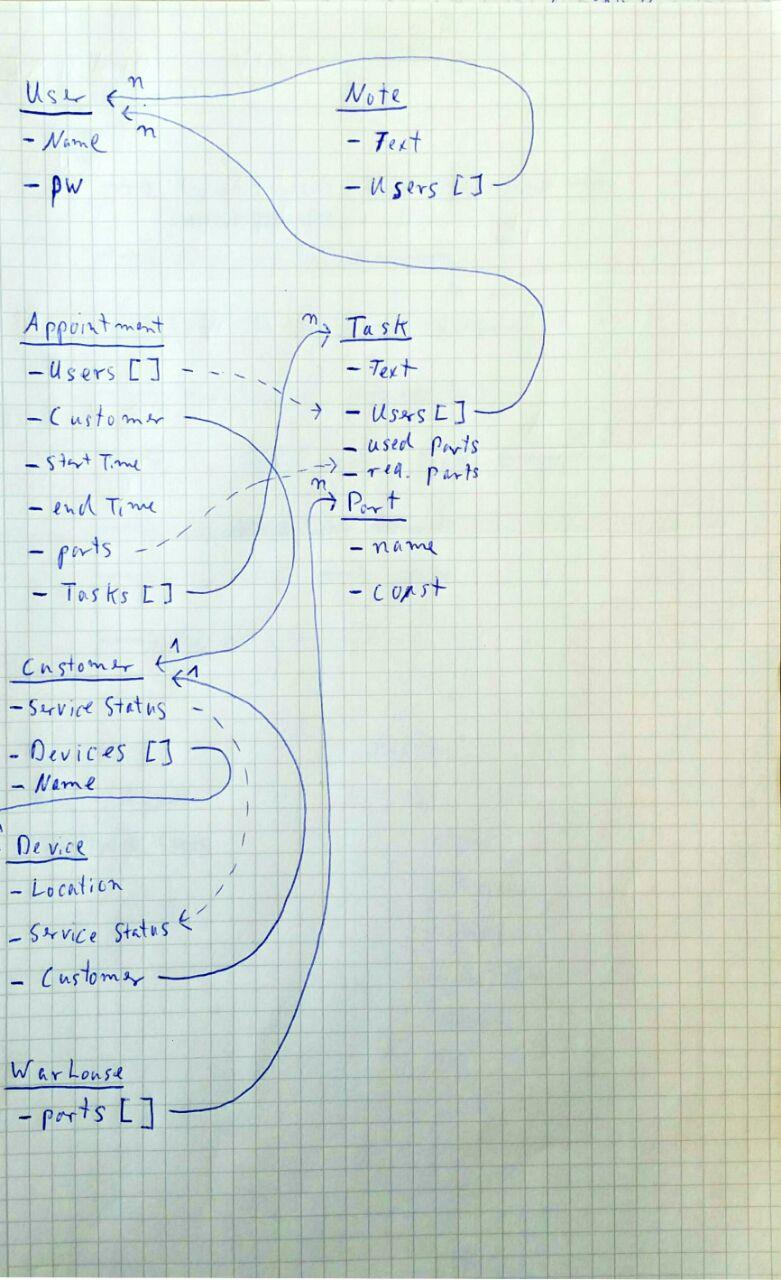 User
- Name
- pw
n
n
Note
- Text
- Users []
Appointment
- Users []
- Customer
- Start Time
- end Time
- parts
- Tasks []
n
Task
- Text
- Users []
- used parts
- req. parts
n
Part
- name
- const
Customer
1
1
- Service Status
- Devices []
- Name
Device
- Location
- Service Status
- Customer
Warhouse
- parts []